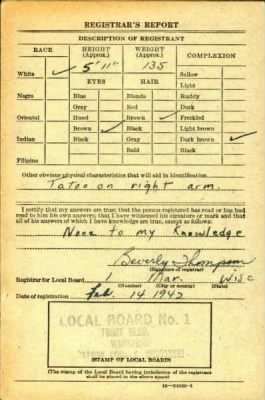 REGISTRAR'S REPORT
DESCRIPTION OF REGISTRANT
RACE HEIGHT (Approx.) WEIGHT (Approx.) COMPLEXION
White ✓ 5' 11" 135 Sallow
Light
EYES HAIR
Negro Blue Blonde Ruddy
Gray Red Dark
Oriental Hazel Brown ✓ Freckled
Brown ✓ Black Light brown
Indian Black Gray Dark brown ✓
Bald Black
Filipino
Other obvious physical characteristics that will aid in identification
Tatoo on right arm.
I certify that my answers are true; that the person registered has read or has had read to him his own answers; that I have witnessed his signature or mark and that all of his answers of which I have knowledge are true, except as follows:
None to my knowledge
Beverly Thompson
(Signature of registrar)
Registrar for Local Board 1 Mar. Wisc
(Number) (City or county) (State)
Date of registration Feb 14 1942
LOCAL BOARD No. 1
(STAMP OF LOCAL BOARD)
(The stamp of the Local Board having jurisdiction of the registrant shall be placed in the above space)